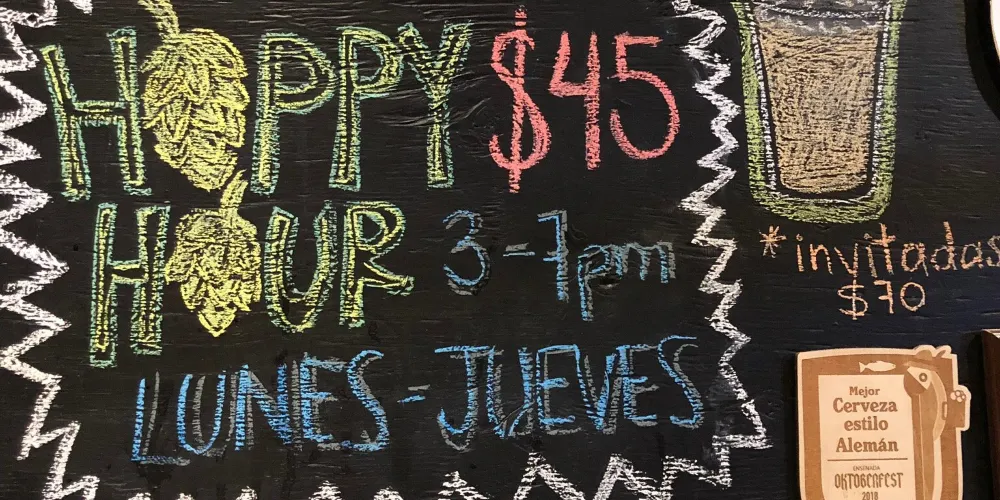 HAPPY $45
HOUR 3-7pm
LUNES-JUEVES
*invitadas
$70
Mejor
Cerveza
estilo
Alemán
ENSENADA
OKTOBERFEST
2018